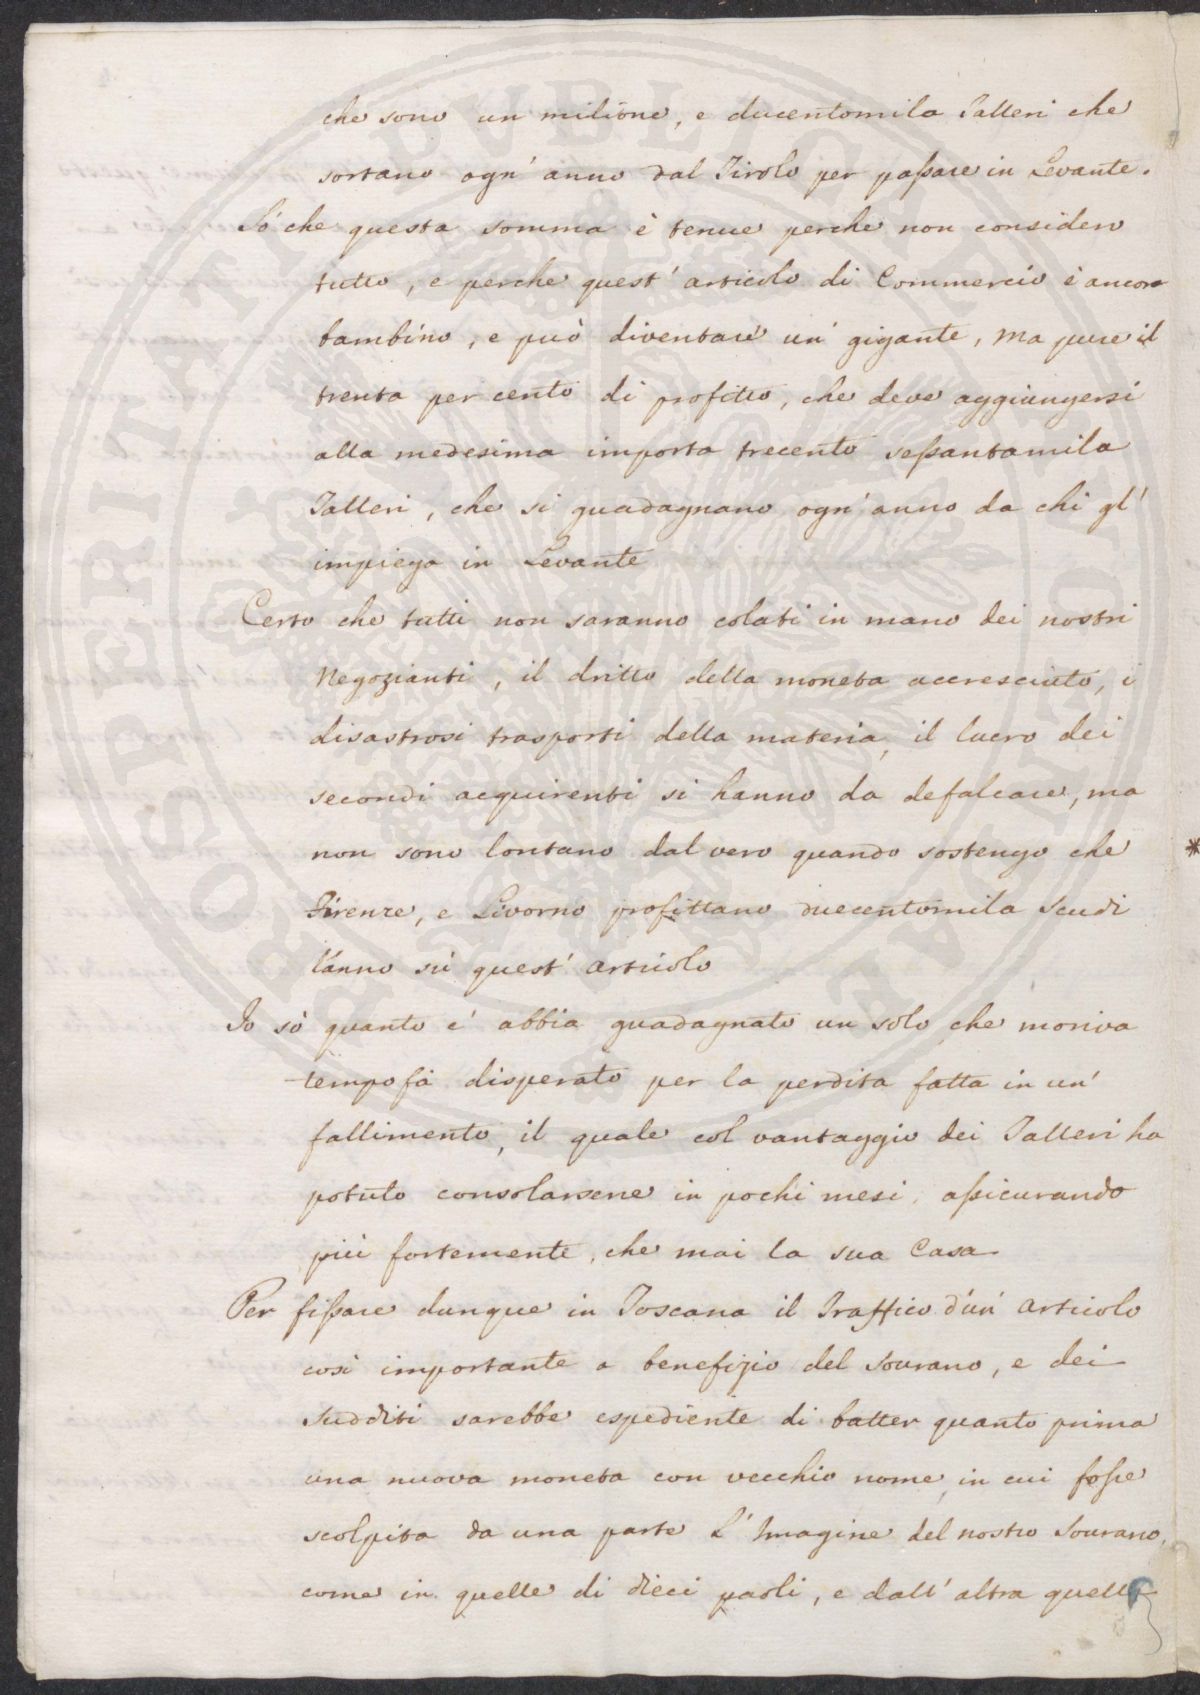 che sono un milione, e ducentomila Talleri che
sortano ogn' anno dal Tirolo per passare in Levante.
Sò che questa somma è tenue perche non considero
tutto, e perche quest' articolo di Commercio è ancora
bambino, e può diventare un' gigante, ma pure il
trenta per cento di profitto, che deve aggiungersi
alla medesima importa trecento sessantamila
Talleri, che si guadagnano ogn' anno da chi gl'
impiega in Levante
Certo che tutti non saranno colati in mano dei nostri
Negozianti, il dritto della moneta accresciuto, i
disastrosi trasporti della materia, il lucro dei
secondi acquirenti si hanno da defalcare, ma
non sono lontano dal vero quando sostengo che
Firenze, e Livorno profittano duecentomila Scudi
l'anno sù quest' articolo
Io sò quanto e' abbia guadagnato un solo che moriva
tempo fà disperato per la perdita fatta in un'
fallimento, il quale col vantaggio dei Talleri ha
potuto consolarsene in pochi mesi, assicurando
più fortemente, che mai la sua Casa
Per fissare dunque in Toscana il Traffico d'un' articolo
così importante a benefizio del Sovrano, e dei
Sudditi sarebbe espediente di batter quanto prima
una nuova moneta con vecchio nome, in cui fosse
scolpita da una parte l' Imagine del nostro Sovrano,
come in quelle di dieci paoli, e dall' altra quella
*
PROSPERITATI PVBLICAE